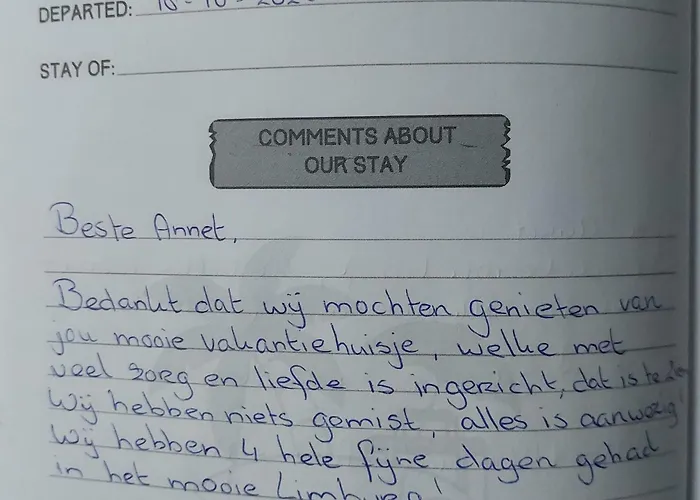 DEPARTED:
STAY OF:
COMMENTS ABOUT
OUR STAY
Beste Annet,
Bedankt dat wij mochten genieten van
jou mooie vakantiehuisje, welke met
veel zorg en liefde is ingericht, dat is te
Wij hebben niets gemist, alles is aanwezig
Wij hebben 4 hele fijne dagen gehad
in het mooie Limburg!